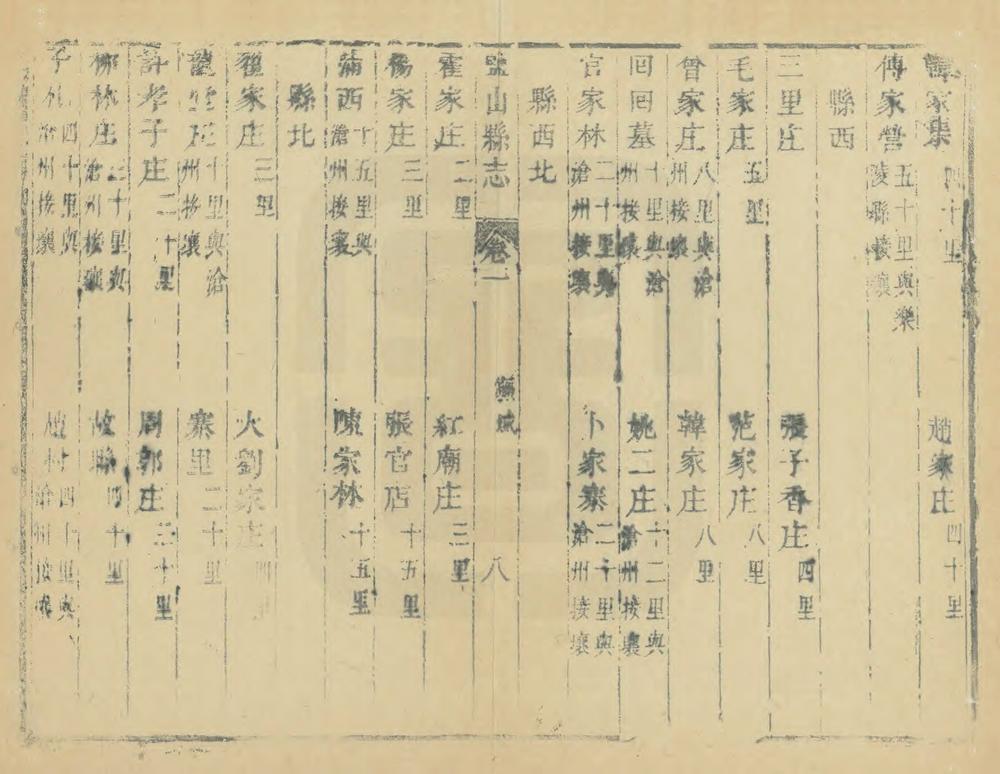 韓家集四十里 趙家庄四十里
傅家營五十里與樂陵縣接壤
縣西
三里庄 張子香庄四里
毛家庄五里 范家庄八里
曾家庄八里與滄州接壤 韓家庄八里
回回墓十里與滄州接壤 姚二庄十二里與滄州接壤
官家林二十里與滄州接壤 卜家寨二十里與滄州接壤
縣西北
鹽山縣志 卷一 八
霍家庄二里 紅廟庄三里
楊家庄三里 張官店十五里
蒲西十五里與滄州接壤 陳家林十五里
縣北
翟家庄三里 大劉家庄四
庄十里與滄州接壤 寨里二十里
許孝子庄二十里 周郭庄三十里
柳林庄三十里與滄州接壤 故縣四十里
子札四十里與滄州接壤 趙村四十里與滄州接壤